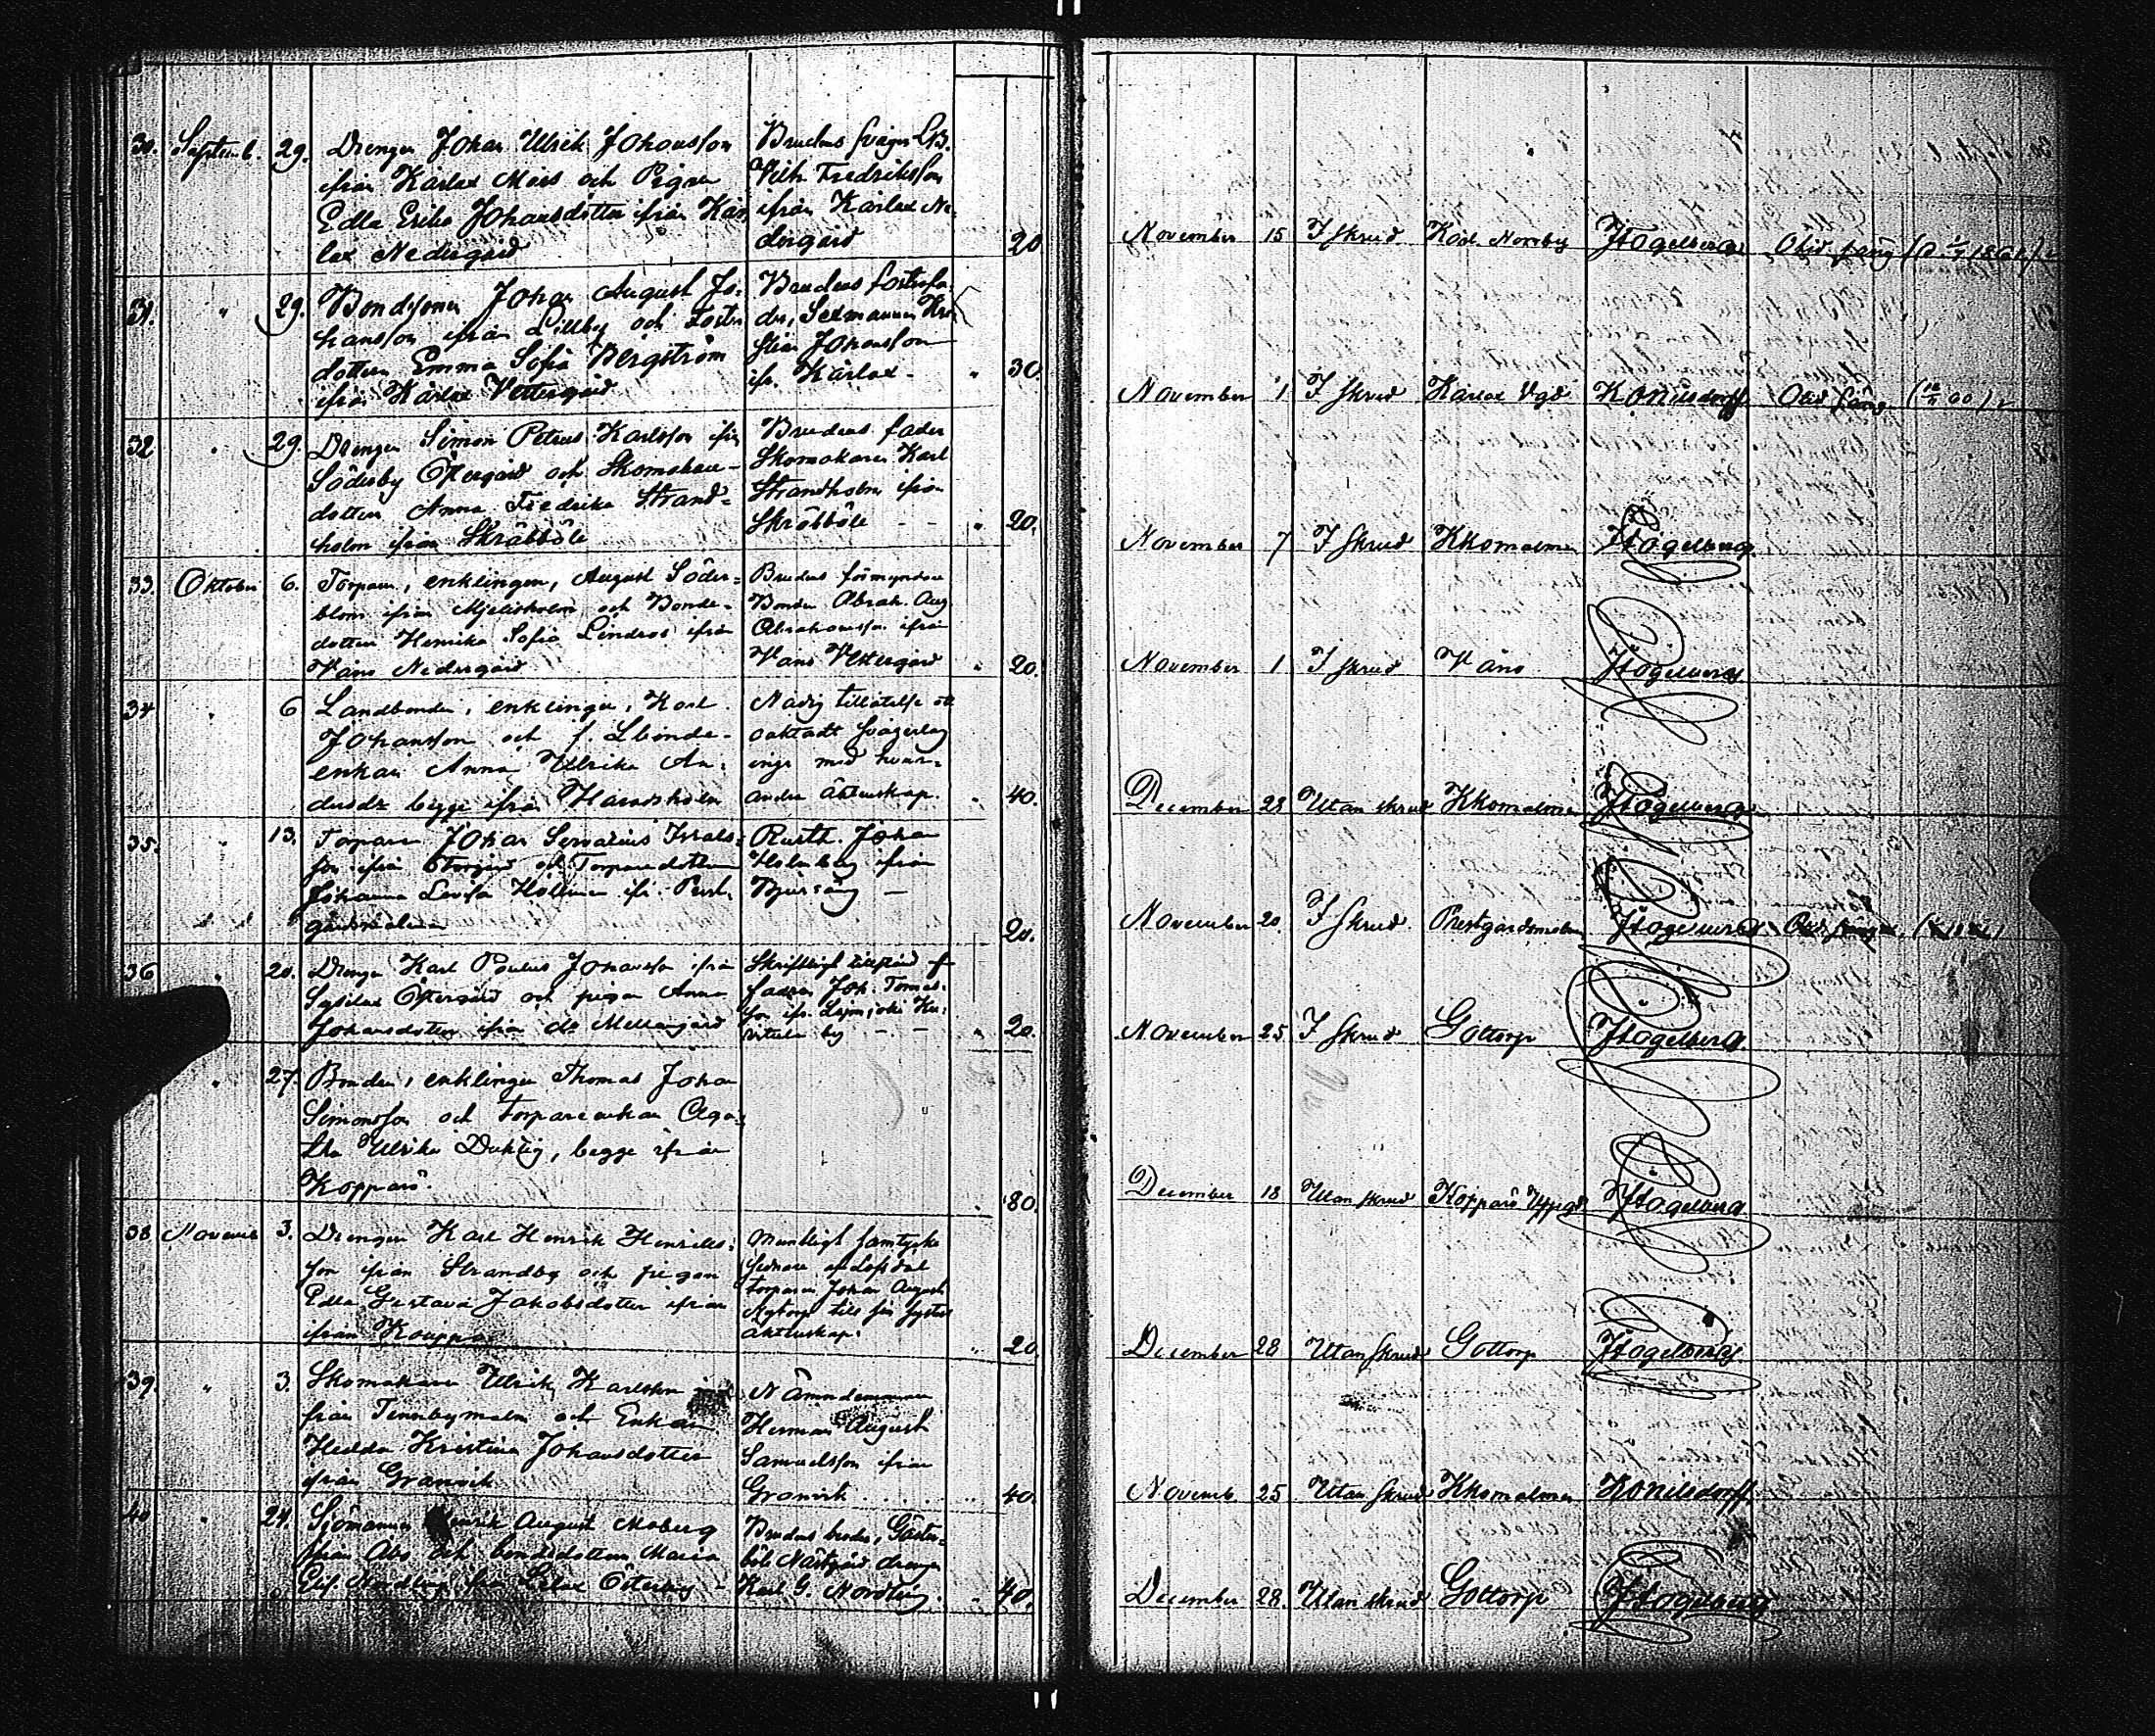 30. Septemb. 29. Drengen Johan Ulrik Johansson
ifrån Kärlax Mois och Pigan
Edla Erika Johansdotter ifrån Kär
lax Nedergård
Brudens svåger LB.
Vilh. Fredriksson
från Kärlax Ne-
dergård
20
November 15 I skrud Kårl. Norrby JHögelberg
31. " 29. Bondesonen Johan August Jo-
hansson ifrån Lillby och Foster
dottern Emma Sofia Bergström
ifrån Kärlax Vettergård
Brudens fosterfa-
der, Sexmannen Kri
stian Johansson
ifr. Kärlax -
" 30.
November 1 I skrud Kärlax Vgd
32 " 29. Drengen Simon Petrus Karlsson ifrn
Söderby Östergård och Skomakare-
dottern Anna Fredrika Strand-
holm ifrån Skräbböle
Brudens fader
Skomakaren Karl
Strandholm ifrån
Skräbböle - -
" 20.
November 7 I skrud Kkomalmen JHögelberg
33. Oktober 6. Torparen, enklingen, August Söder-
blom ifrån Mjelisholm och Bonde-
dottern Henrika Sofia Lindros ifrån
Våno Nedergård
Brudens förmyndare
Bonden Abrah. Aug.
Abrahamsson ifrån
Våno Vettergård
" 20.
November 1 I skrud Våno JHögelberg
34 " 6 Landbonden, enklingen, Karl
Johansson och f. Lbonde-
enkan Anna Ulrika An-
dersdr begge ifrån Haradsholm
Nådig tillåtelse att
oaktadt svågerlag
ingå med hvar-
andra äktenskap.
" 40.
December 28 Utan skrud Kkomalmen JHögelberg
35. " 13. Torparen Johan Servatius Israels-
son ifrån Storgård och Torparedottern
Johanna Lovisa Hollmen ifr. Prest-
gårdsmalmen
Rusth. Johan
Holmberg ifrån
Bjursäng -
20.
November 20. I skrud. Prestgårdsmalmen JHögelberg
36 " 20. Drengen Karl Paulus Johansson ifrån
Sysilax Östergård och pigan Anna
Johansdotter ifrån do Mellangård
Skriftligt tillstånd af
fadren Joh. Tomas-
son ifr.
by - -
" 20.
November 25 I skrud Gottorp JHögelberg
" 27. Bonden, enklingen Thomas Johan
Simonsson och Torpareenkan Aga-
tha Ulrika Duktig, begge ifrån
Kopparö.
" 80.
December 18 Utan skrud Kopparö Uppgd JHögelberg
38 Novemb 3. Drengen Karl Henrik Henriks-
son ifrån Strandby och pigan
Edla Gustava Jakobsdotter ifrån
ifrån Kouppa
Muntligt samtycke
torparen Johan August
Nytorp till sin systers
äktenskap.
" 20.
December 28 Utan skrud Gottorp JHögelberg
39. " 3. Skomakaren Ulrik Karlsson
från Tennbymalm och Enkan
Hedda Kristina Johansdotter
ifrån Granvik
Nämndemannen
Herman August
Samuelsson ifrån
Granvik
" 40.
Novemb. 25 Utan skrud Kkomalmen
40 " 24. Sjömannen Henrik August Moberg
ifrån Åbo och bondedottern Maria
Elis. Nordling från Lelax Österby -
Brudens broder, Gäster-
böle Nästgård drengen
Karl G. Nordling.
" 40.
December 28. Utan skrud Gottorp JHögelberg